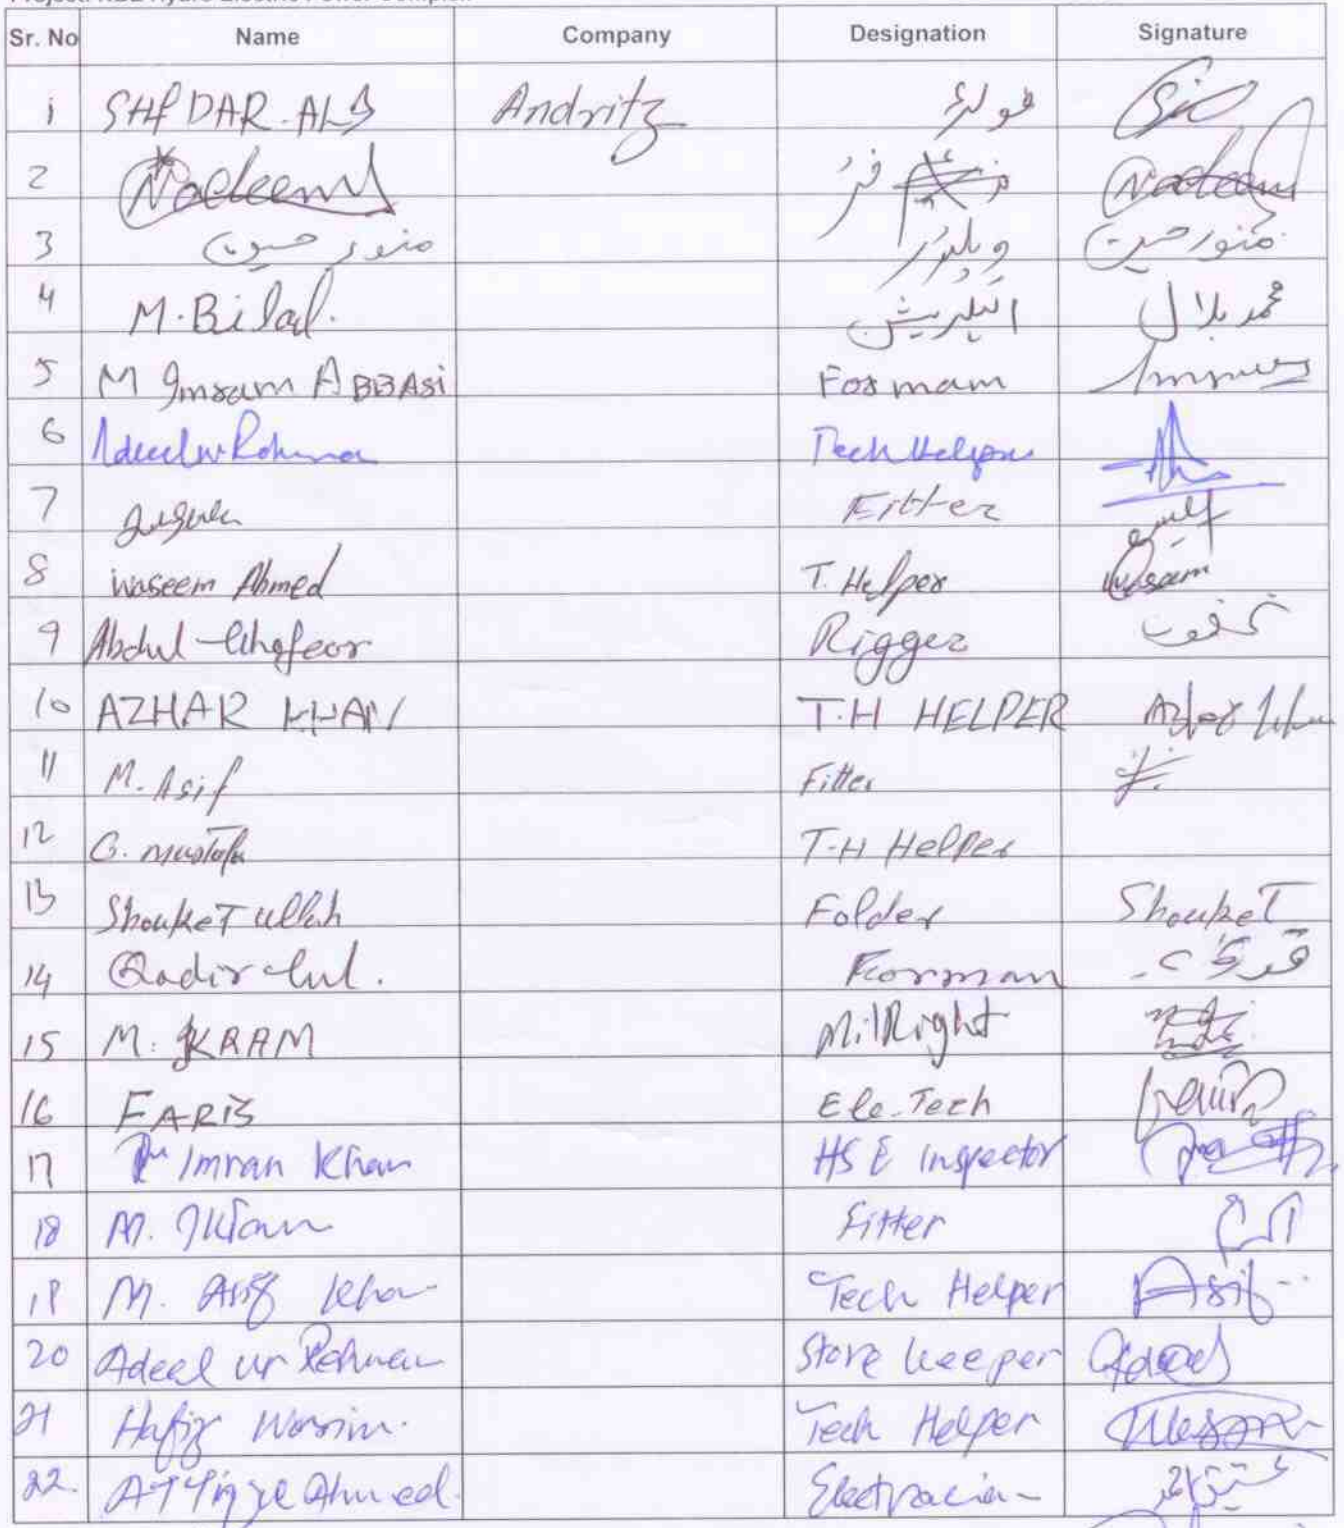 Sr. No Name Company Designation Signature
1 SAFDAR ALI Andritz فولڈر
2 Nadeem فٹر Nadeem
3 منور حسین ویلڈر منور حسین
4 M. Bilal. الیکٹریشن محمد بلال
5 M Imran ABBASi Forman
6 Adeel ur Rehman Tech Helper
7 Fitter
8 Waseem Ahmed T. Helper Waseem
9 Abdul Ghafoor Rigger
10 AZHAR KHAN T.H HELPER Azhar Khan
11 M. Asif Fitter
12 G. Mustafa T-H Helper
13 ShoukeT ullah Folder ShoukeT
14 Qadir Gul. Foorman
15 M. IKRAM MilRight
16 FARIS Ele-Tech
17 Imran Khan HSE Inspector
18 M. Ikram Fitter
19 M. Asif Khan Tech Helper Asif
20 Adeel ur Rehman Store keeper Adeel
21 Hafiz Wasim. Tech Helper
22. ATTiqye Ahmed. Electracian عتیق احمد